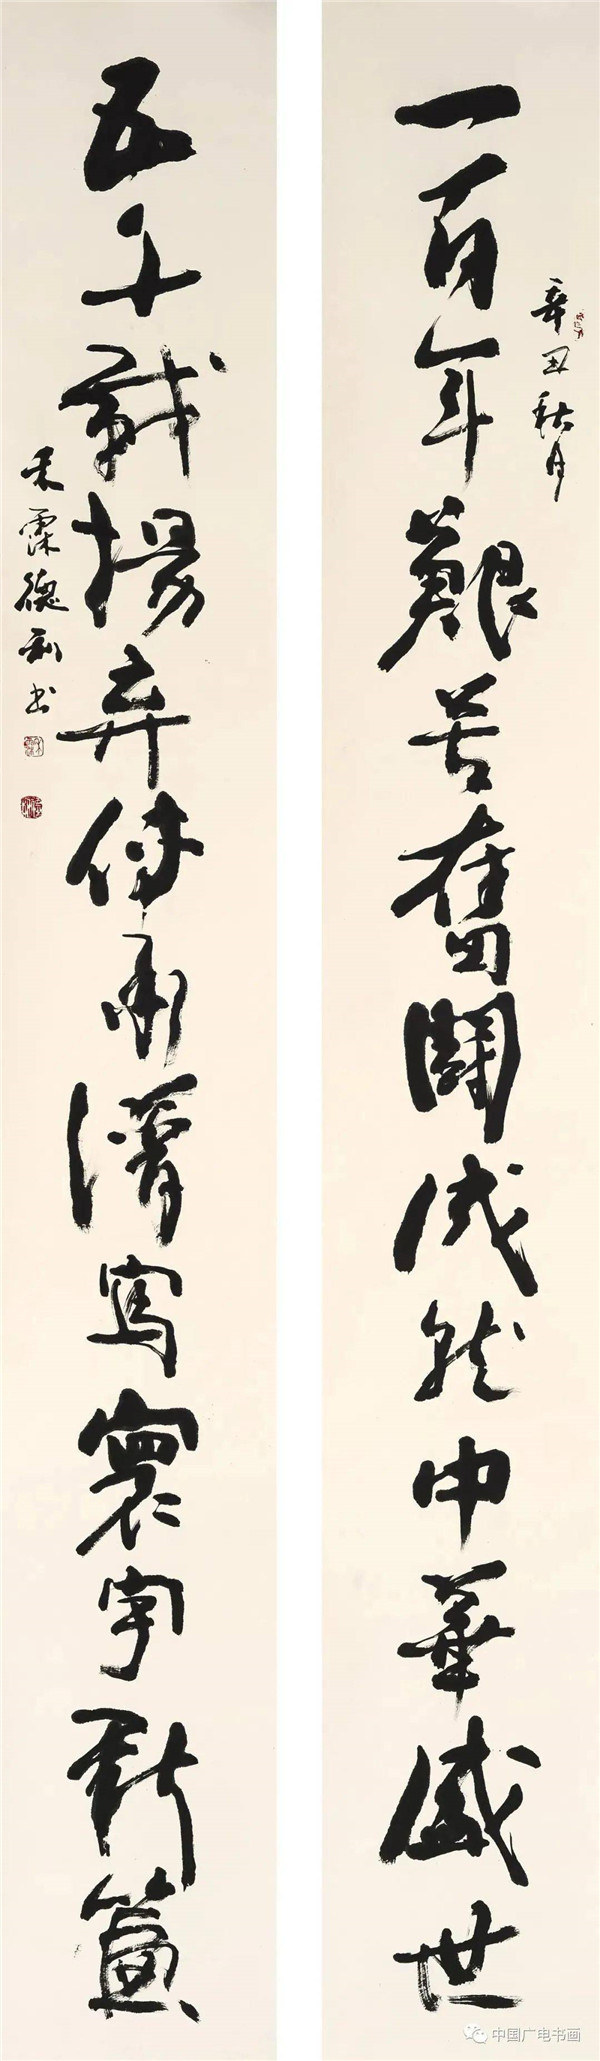 一百年艱苦奮鬪成就中華盛世
辛丑秋月
五千載揚弃傳承譜寫寰宇新篇
禾霖德利书
中国广电书画